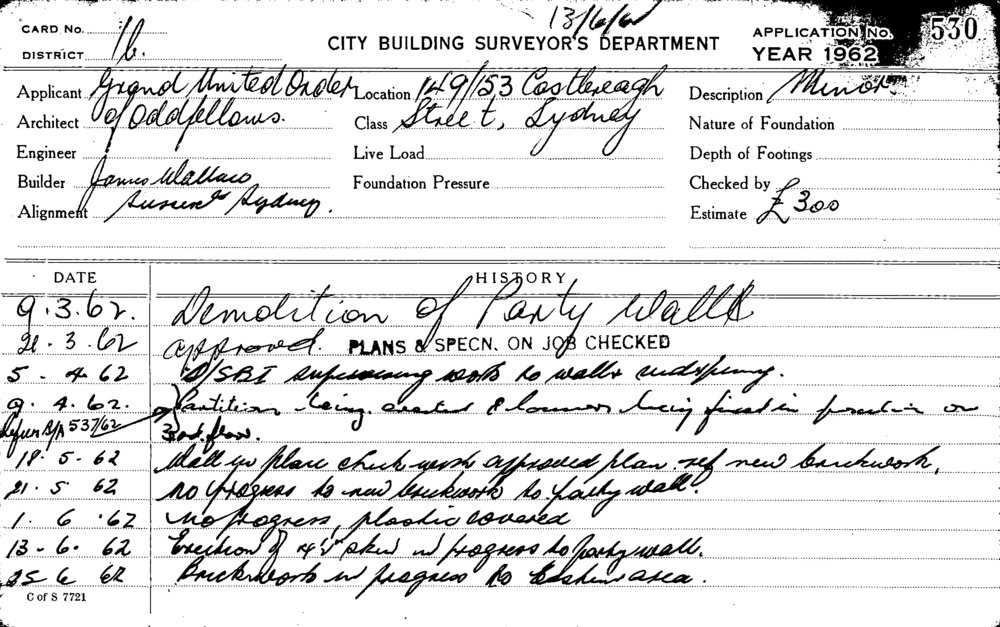 13/6/62
CARD No. 16.
DISTRICT
CITY BUILDING SURVEYOR'S DEPARTMENT
APPLICATION No. 530
YEAR 1962
Applicant Grand United Order Location 149/153 Castlereagh Description Minor
Architect of Oddfellows. Class Street, Sydney Nature of Foundation
Engineer Live Load Depth of Footings
Builder James Wallace Foundation Pressure Checked by
Alignment Sussex St Sydney. Estimate £300
DATE HISTORY
9.3.62. Demolition of Party Walls
21.3.62 Approved. PLANS & SPECN. ON JOB CHECKED
5-4 62 D/SBI supervising work to walls
9.4.62. Partitions being erected & being fixed in position on
Refer B/A 537/62 3rd floor.
18.5-62 Wall in place check with approved plan ref new brickwork.
21.5 62 no progress to new brickwork to party wall.
1.6.62 No progress, plastic covered
13-6.62 Erection of 4½" skin in progress to party wall.
25 6 62 Brickwork in progress to Eastern area.
C of S 7721